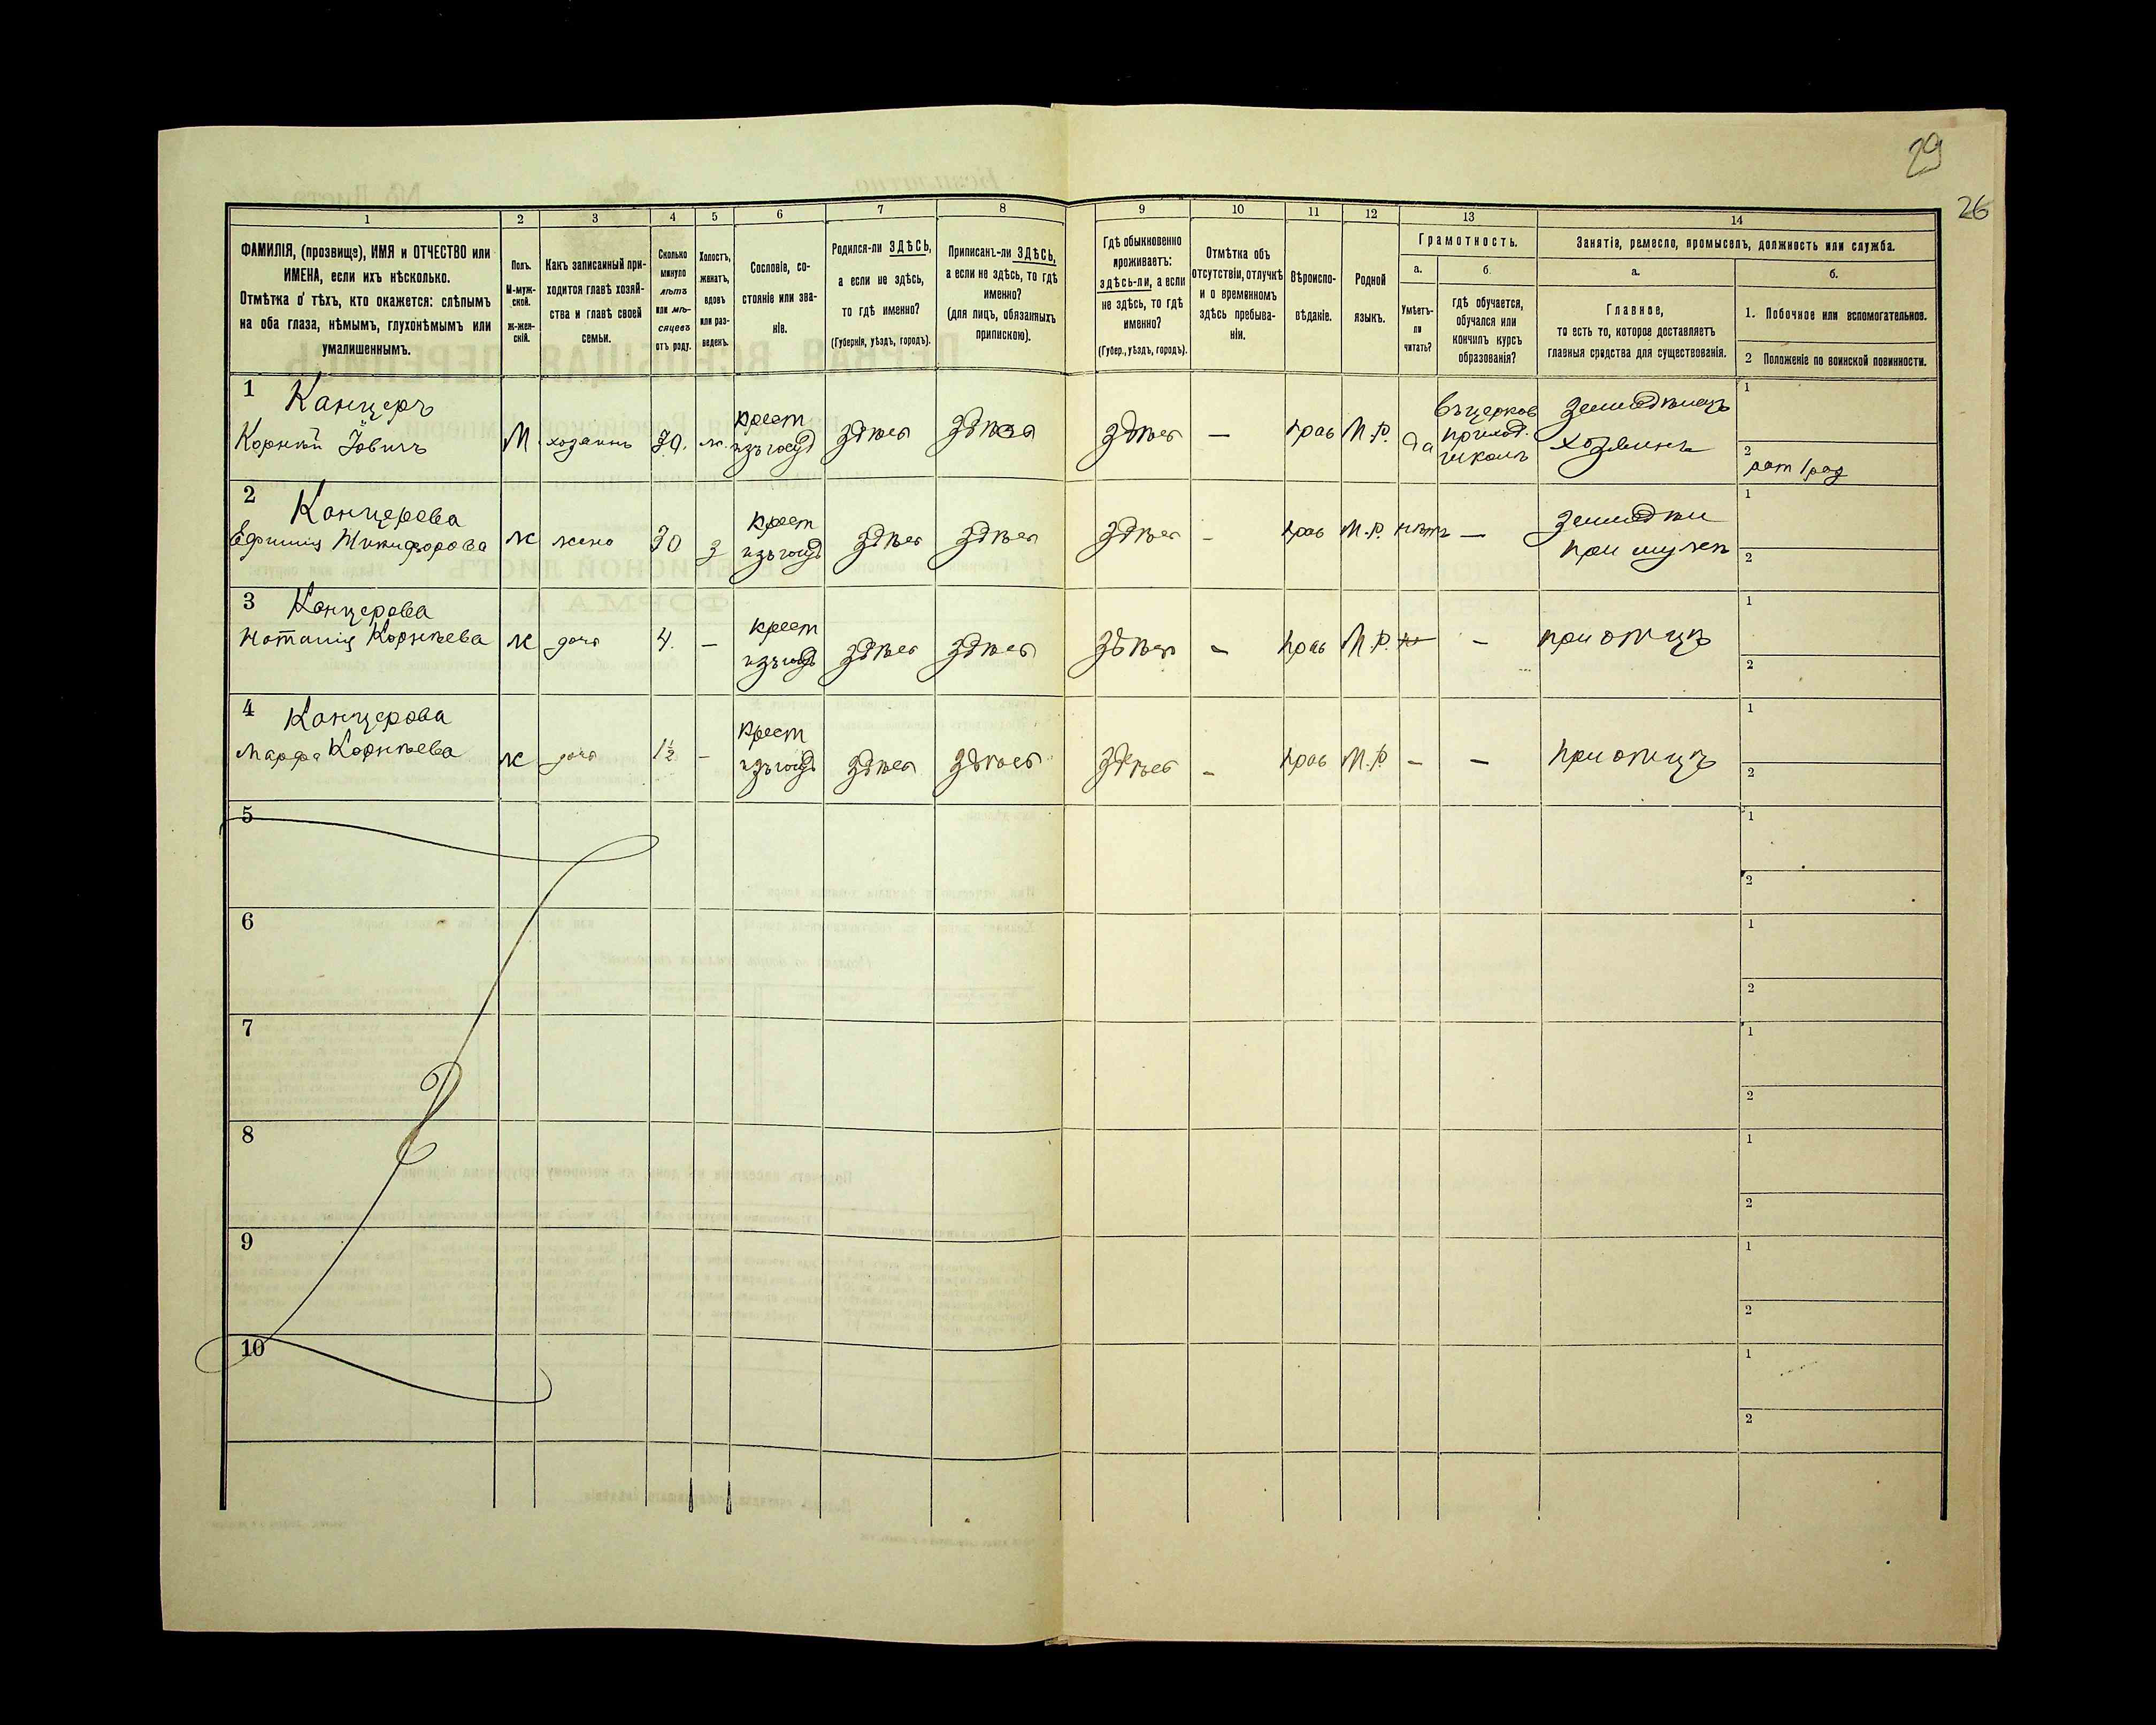 29
26
1
2
3
4
5
6
7
8
9
10
11
12
13
14
ФАМИЛІЯ, (прозвище), ИМЯ и ОТЧЕСТВО или
ИМЕНА, если ихъ нѣсколько.
Отмѣтка о тѣхъ, кто окажется: слѣпымъ
на оба глаза, нѣмымъ, глухонѣмымъ или
умалишеннымъ.
Полъ.
М-муж-
ской.
Ж-жен-
скій.
Какъ записанный при-
ходится главѣ хозяй-
ства и главѣ своей
семьи.
Сколько
минуло
лѣтъ
или мѣ-
сяцевъ
отъ роду.
Холостъ,
женатъ,
вдовъ
или раз-
веденъ.
Сословіе, со-
стояніе или зва-
ніе.
Родился-ли ЗДѢСЬ,
а если не здѣсь,
то гдѣ именно?
(Губернія, уѣздъ, городъ).
Приписанъ-ли ЗДѢСЬ,
а если не здѣсь, то гдѣ
именно?
(для лицъ, обязанныхъ
припискою).
Гдѣ обыкновенно
проживаетъ:
здѣсь-ли, а если
не здѣсь, то гдѣ
именно?
(Губер., уѣздъ, городъ).
Отмѣтка объ
отсутствіи, отлучкѣ
и о временномъ
здѣсь пребыва-
ніи.
Вѣроиспо-
вѣданіе.
Родной
языкъ.
Грамотность.
а.
Умѣетъ-
ли
читать?
б.
гдѣ обучается,
обучался или
кончилъ курсъ
образованія?
Занятіе, ремесло, промыселъ, должность или служба.
а.
Главное,
то есть то, которое доставляетъ
главныя средства для существованія.
б.
1. Побочное или вспомогательное.
2 Положеніе по воинской повинности.
1 Канцеръ
Корнѣй Іовичъ
М
хозяинъ
30.
ж.
крест
изъ госуд
здѣсь
здѣсь
здѣсь
—
прав
М.Р.
да
въ церков
приход.
школѣ
земледѣлецъ
хозяинъ
1
2
рат 1 раз
2 Канцерова
Ефимія Никифорова
ж
жена
30
з
крест
изъ госуд
здѣсь
здѣсь
здѣсь
-
прав
М.Р.
нѣтъ
—
земледѣл
при мужѣ
1
2
3 Канцерова
Наталія Корнѣева
ж
дочь
4.
—
крест
изъ госуд
здѣсь
здѣсь
здѣсь
-
прав
М.Р.
-
при отцѣ
1
2
4 Канцерова
Марфа Корнѣева
ж
дочь
1½
-
крест
изъ госуд
здѣсь
здѣсь
здѣсь
-
прав
М.Р
-
-
при отцѣ
1
2
5
1
2
6
1
2
7
1
2
8
1
2
9
1
2
10
1
2